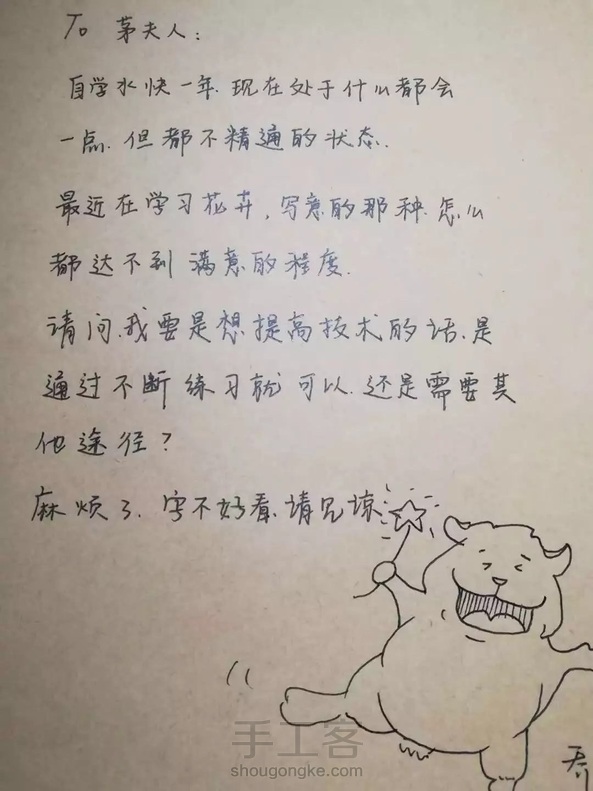 To 茅夫人:
自学水快一年.现在处于什么都会
一点.但都不精通的状态.
最近在学习花卉,写意的那种.怎么
都达不到满意的程度.
请问.我要是想提高技术的话.是
通过不断练习就可以.还是需要其
他途径?
麻烦了.字不好看.请见谅
手工客
shougongke.com
乔